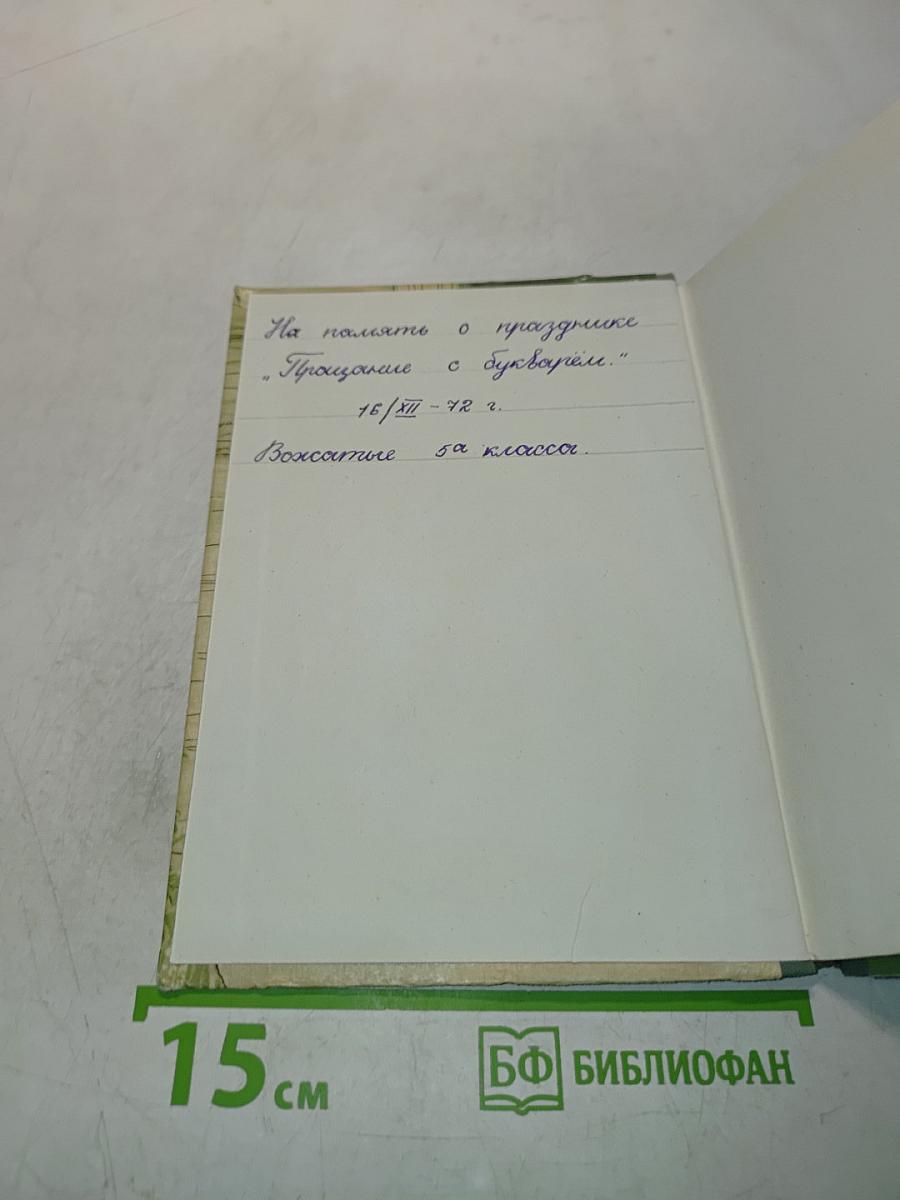 На память о празднике
„Прощание с букварём."
16/XII - 72 г.
Вожатые 5а класса.
15 см
БФ БИБЛИОФАН